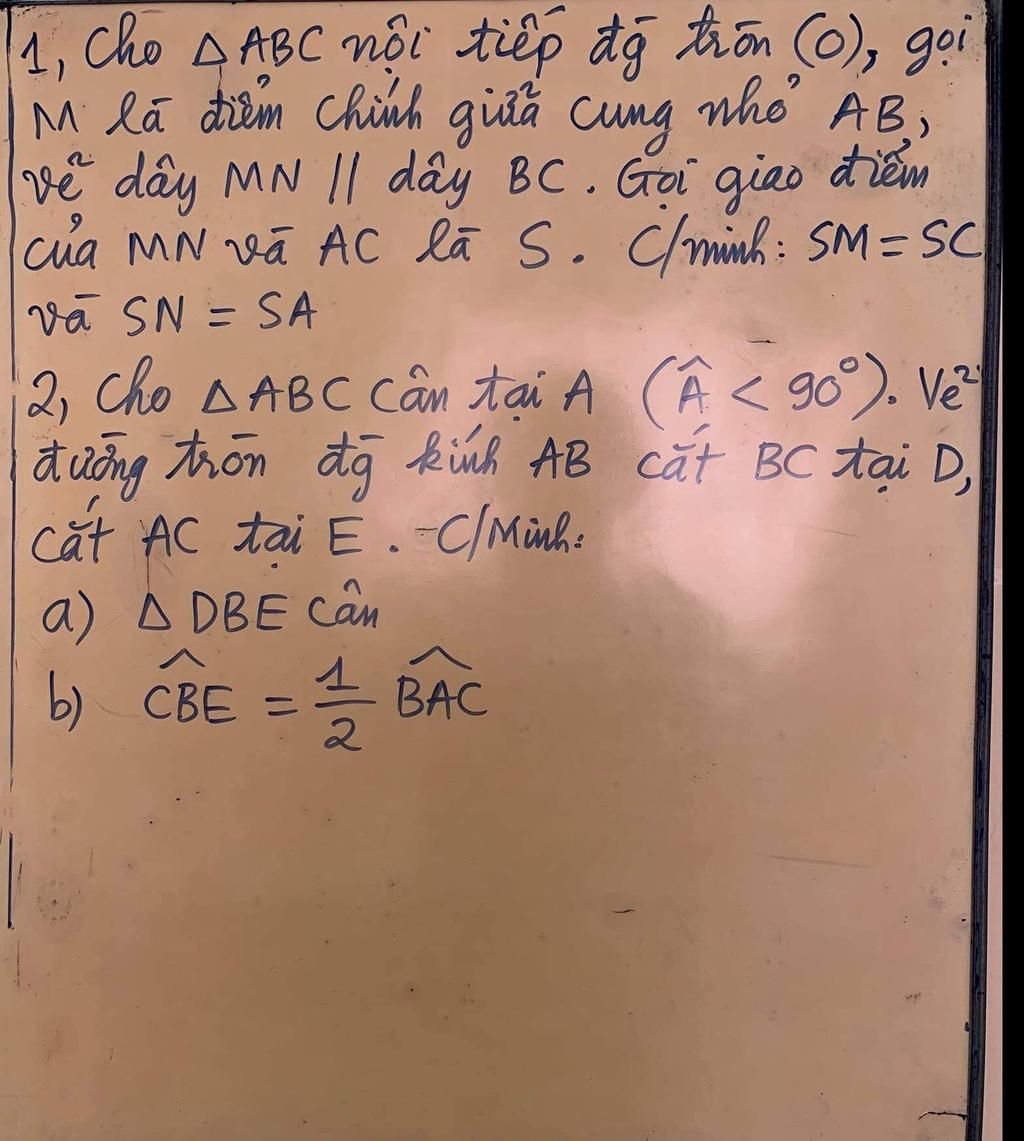 1, Cho △ABC nội tiếp đg̀ tròn (O), gọi
M là điểm chính giữa cung nhỏ AB,
vẽ dây MN // dây BC. Gọi giao điểm
của MN và AC là S. C/minh: SM = SC
và SN = SA
2, Cho △ABC cân tại A (Â < 90°). Vẽ
đường tròn đg̀ kính AB cắt BC tại D,
cắt AC tại E. C/Minh:
a) △DBE cân
b) \widehat{CBE} = \frac{1}{2} \widehat{BAC}